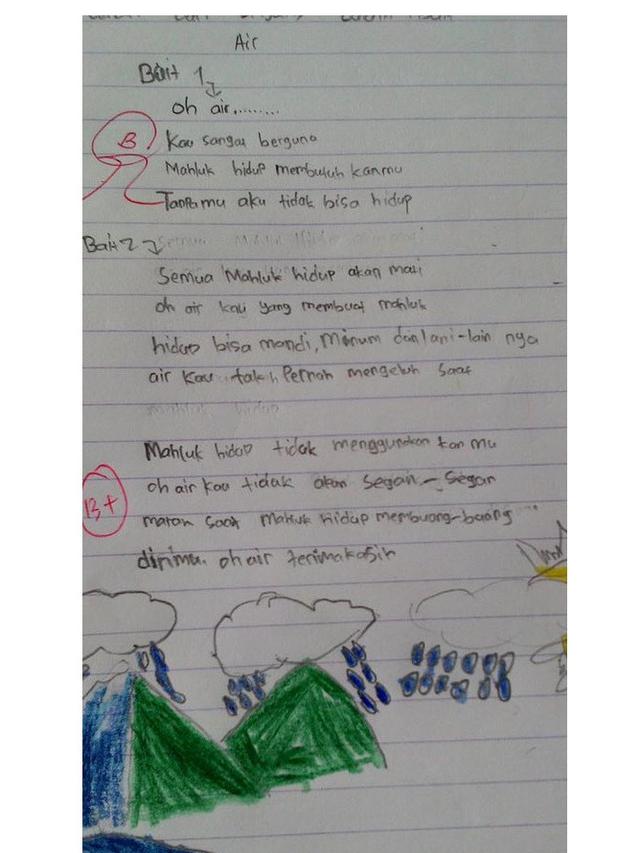 Air
Bait 1
oh air.........
B
Kau sangat berguna
Mahluk hidup membutuh kanmu
Tanpamu aku tidak bisa hidup
Bait 2
Semua Mahluk hidup akan mati
oh air kau yang membuat mahluk
hidup bisa mandi, Minum dan lani-lain nya
air kau takh Pernah mengeluh saat
mahluk hidup
Mahluk hidup tidak menggunakan kan mu
B+
oh air kau tidak akan Segan - Segan
maran saat mahluk hidup membuang-buang
dirimu. oh air terimakasih